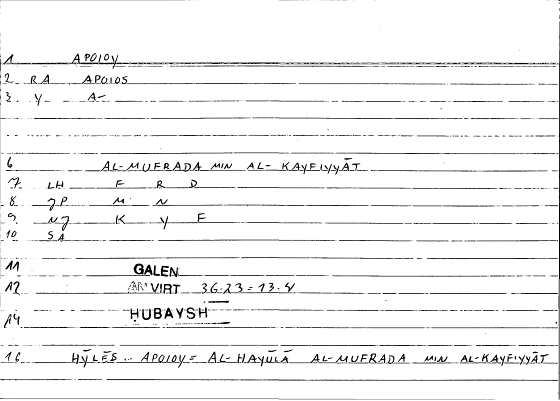 1 APOIOY
2 RA APOIOS
3 Y A-
6 AL-MUFRADA MIN AL-KAYFIYYĀT
7 LH F R D
8 JP M N
9 NJ K Y F
10 SA
11 GALEN
12 AN VIRT 36.23 = 13.4
14 ḤUBAYSH
16 HȲLĒS... APOIOY = AL-HAYŪLĀ AL-MUFRADA MIN AL-KAYFIYYĀT